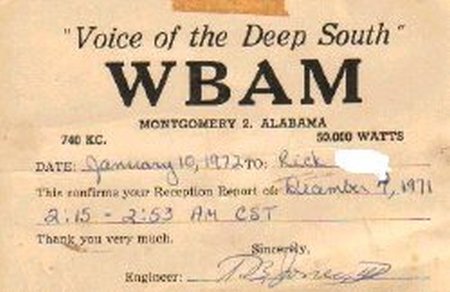 "Voice of the Deep South"
WBAM
MONTGOMERY 2, ALABAMA
740 KC. 50,000 WATTS
DATE: January 10, 1972 TO: Rick
This confirms your Reception Report of: December 7, 1971
2:15 - 2:53 AM CST
Thank you very much.
Sincerely,
Engineer: